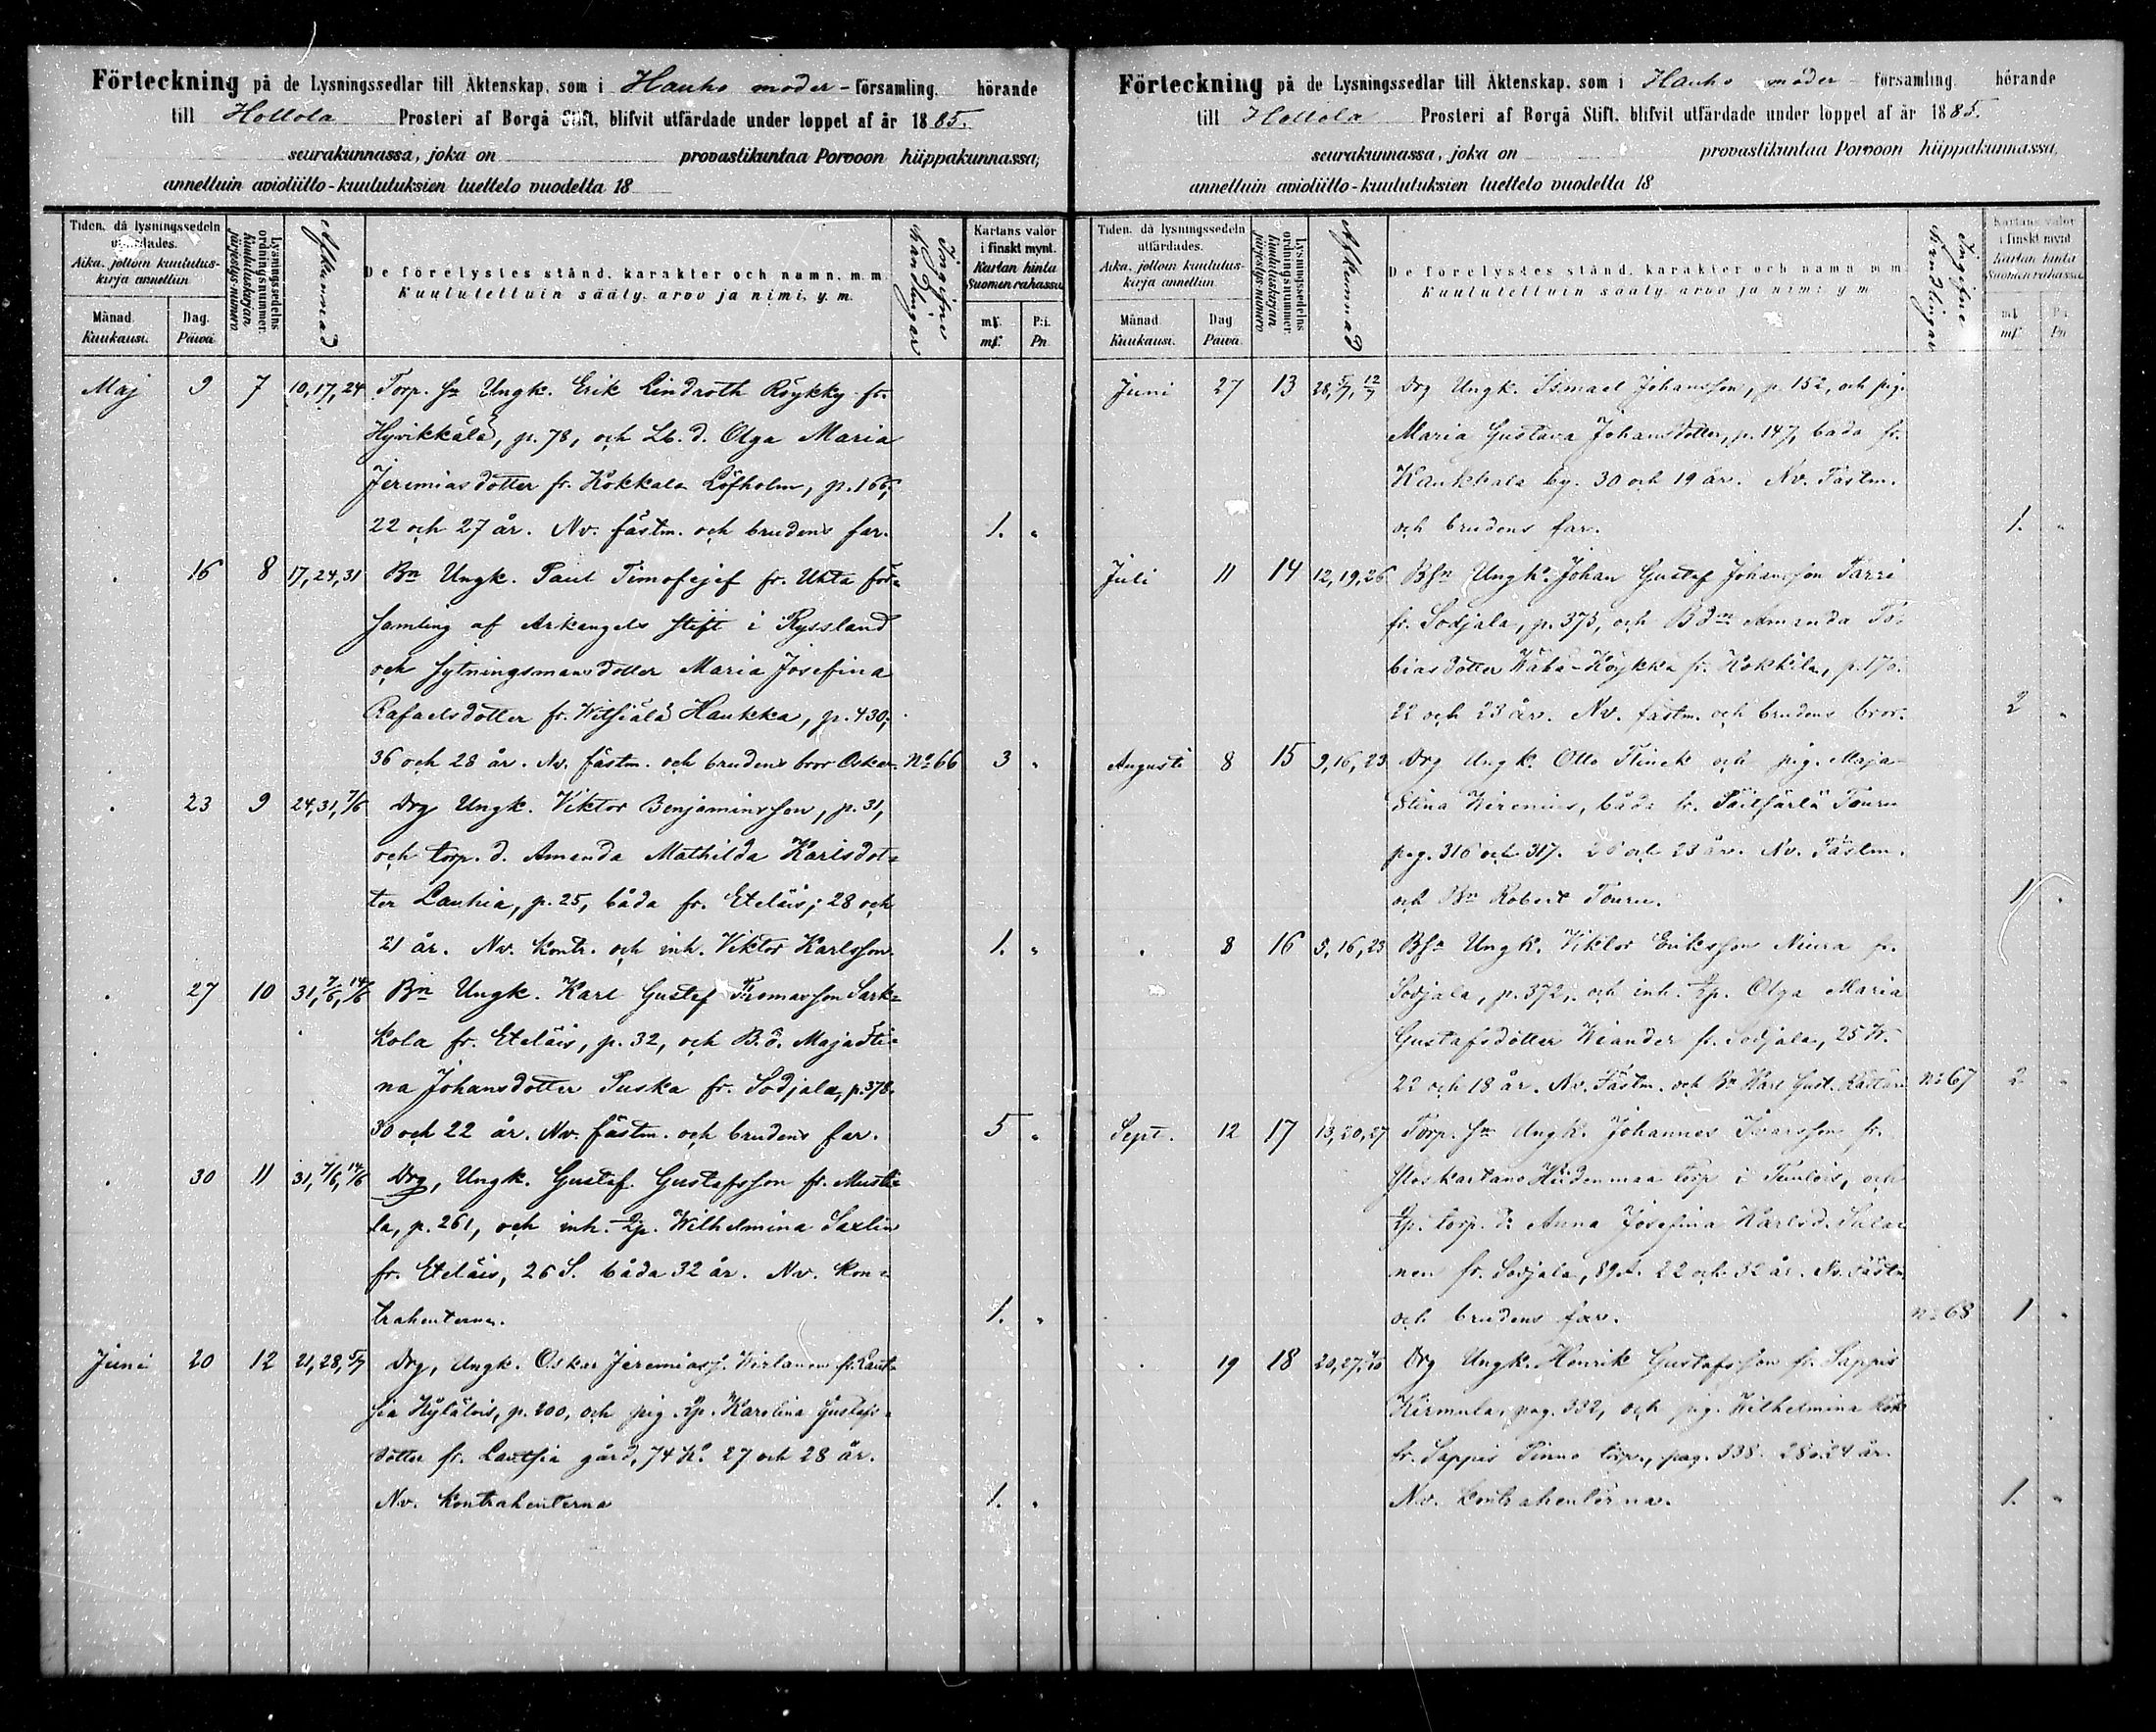 Förteckning på de Lysningssedlar till Äktenskap, som i Hauho moder-församling, hörande
till Hollola Prosteri af Borgå Stift, blifvit utfärdade under loppet af år 1885.
seurakunnassa, joka on provastikuntaa Porvoon hiippakunnassa,
annettuin avioliitto-kuulutuksien luettelo vuodelta 18
Tiden, då lysningssedeln utfärdades.
Aika, jolloin kuulutus-kirja annettiin
Månad. Kuukausi.
Dag. Päivä.
Lysningssedelns ordningsnummer.
Kuulutuskirjan järjestys-numero
Afkunnad
De förelystes stånd, karakter och namn, m. m.
Kuulutettuin sääty, arvo ja nimi, y. m.
Ingifne handlingar
Kartans valör i finskt mynt.
Kartan hinta Suomen rahassa
mf. mf.
P:i. Pn.
Maj 9 7 10, 17, 24 Torp. sn Ungk. Erik Lindroth Röykky fr.
Hyvikkälä, p. 78, och Lb. d. Olga Maria
Jeremiasdotter fr. Kokkala Löfholm, p. 166,
22 och 27 år. Nv. fästm. och brudens far. 1. "
" 16 8 17, 24, 31 Bn Ungk. Paul Timofejef fr. Uhta för=
samling af Arkangels stift i Ryssland
och sytningsmansdotter Maria Josefina
Rafaelsdotter fr. Witsiälä Haukka, p. 430,
36 och 28 år. Nv. fästm. och brudens bror Oskar. No 66 3 "
" 23 9 24, 31, 7/6 Drg Ungk. Viktor Benjaminsson, p. 31,
och torp. d. Amanda Mathilda Karlsdot=
ter Lauhia, p. 25, båda fr. Eteläis; 28 och
21 år. Nv. kontr. och inh. Viktor Karlsson. 1. "
" 27 10 31, 7/6, 14/6 Bn Ungk. Karl Gustaf Thomasson Sark=
kola fr. Eteläis, p. 32, och B. d. Maja Sti=
na Johansdotter Puska fr. Sodjala, p. 378.
30 och 22 år. Nv. fästm. och brudens far. 5 "
" 30 11 31, 7/6, 14/6 Drg, Ungk. Gustaf Gustafsson fr. Musti=
la, p. 261, och inh. Qp. Wilhelmina Saxlin
fr. Eteläis, 26 S. båda 32 år. Nv. kon=
trahenterna. 1. "
Juni 20 12 21, 28, 5/7 Drg, Ungk. Oskar Jeremiass. Wirtanen fr. Laut=
sia Kylätois, p. 200, och pig. Qp. Karolina Gustafs=
dotter fr. Lautsia gård, 74 K. 27 och 28 år.
Nv. kontrahenterna 1. "
Förteckning på de Lysningssedlar till Äktenskap, som i Hauho moder-församling, hörande
till Hollola Prosteri af Borgå Stift, blifvit utfärdade under loppet af år 1885.
seurakunnassa, joka on provastikuntaa Porvoon hiippakunnassa,
annettuin avioliitto-kuulutuksien luettelo vuodelta 18
Tiden, då lysningssedeln utfärdades.
Aika, jolloin kuulutus-kirja annettiin.
Månad Kuukausi.
Dag Päivä.
Lysningssedelns ordningsnummer.
Kuulutuskirjan järjestys-numero
Afkunnad
De förelystes stånd, karakter och namn m. m.
Kuulutettuin sääty, arvo ja nimi y. m.
Ingifne handlingar
Kartans valör i finskt mynt
Kartan hinta Suomen rahassa
mf. mf.
P:i Pn
Juni 27 13 28, 5/7, 12/7 Drg Ungk. Ismael Johansson, p. 152, och pig.
Maria Gustava Johansdotter, p. 147, båda fr.
Kaukkala by. 30 och 19 år. Nv. Fästm.
och brudens far. 1. "
Juli 11 14 12, 19, 26 Bsn Ungk. Johan Gustaf Johansson Parri
fr. Sodjala, p. 375, och Bdn Amanda To=
biasdotter Wähä-Köykkä fr. Kokkila, p. 170.
22 och 23 år. Nv. fästm. och brudens bror. 2 "
Augusti 8 15 9, 16, 23 Drg Ungk. Otto Flinck och pig. Maja
Stina Wirenius, båda fr. Touru
pag. 316 och 317. 26 och 23 år. Nv. Fästm.
och Bn Robert Touru. 1 "
" 8 16 9, 16, 23 Bsn Ungk. Viktor Eriksson Niura fr.
Sodjala, p. 372, och inh. Qp. Olga Maria
Gustafsdotter Wiander fr. Sodjala, 25 W.
22 och 18 år. Nv. Fästm. och Bn Karl Gust. No 67 2 "
Sept. 12 17 13, 20, 27 Torp. sn Ungk. Johannes Ivarsson fr.
Hiidenmaa torp i Tuulois, och
Qp. torp. d. Anna Josefina Karlsd. Sala=
nen fr. Sodjala, 89 A. 22 och 32 år. Nv. Fästm
och brudens far. No 68 1 "
" 19 18 20, 27, 4/10 Drg Ungk. Henrik Gustafsson fr. Sappis
Kirmula, pag. 332, och pig. Wilhelmina
fr. Sappis Pinno torp, pag. 338. 28 o. 24 år.
Nv. Kontrahenterna. 1. "